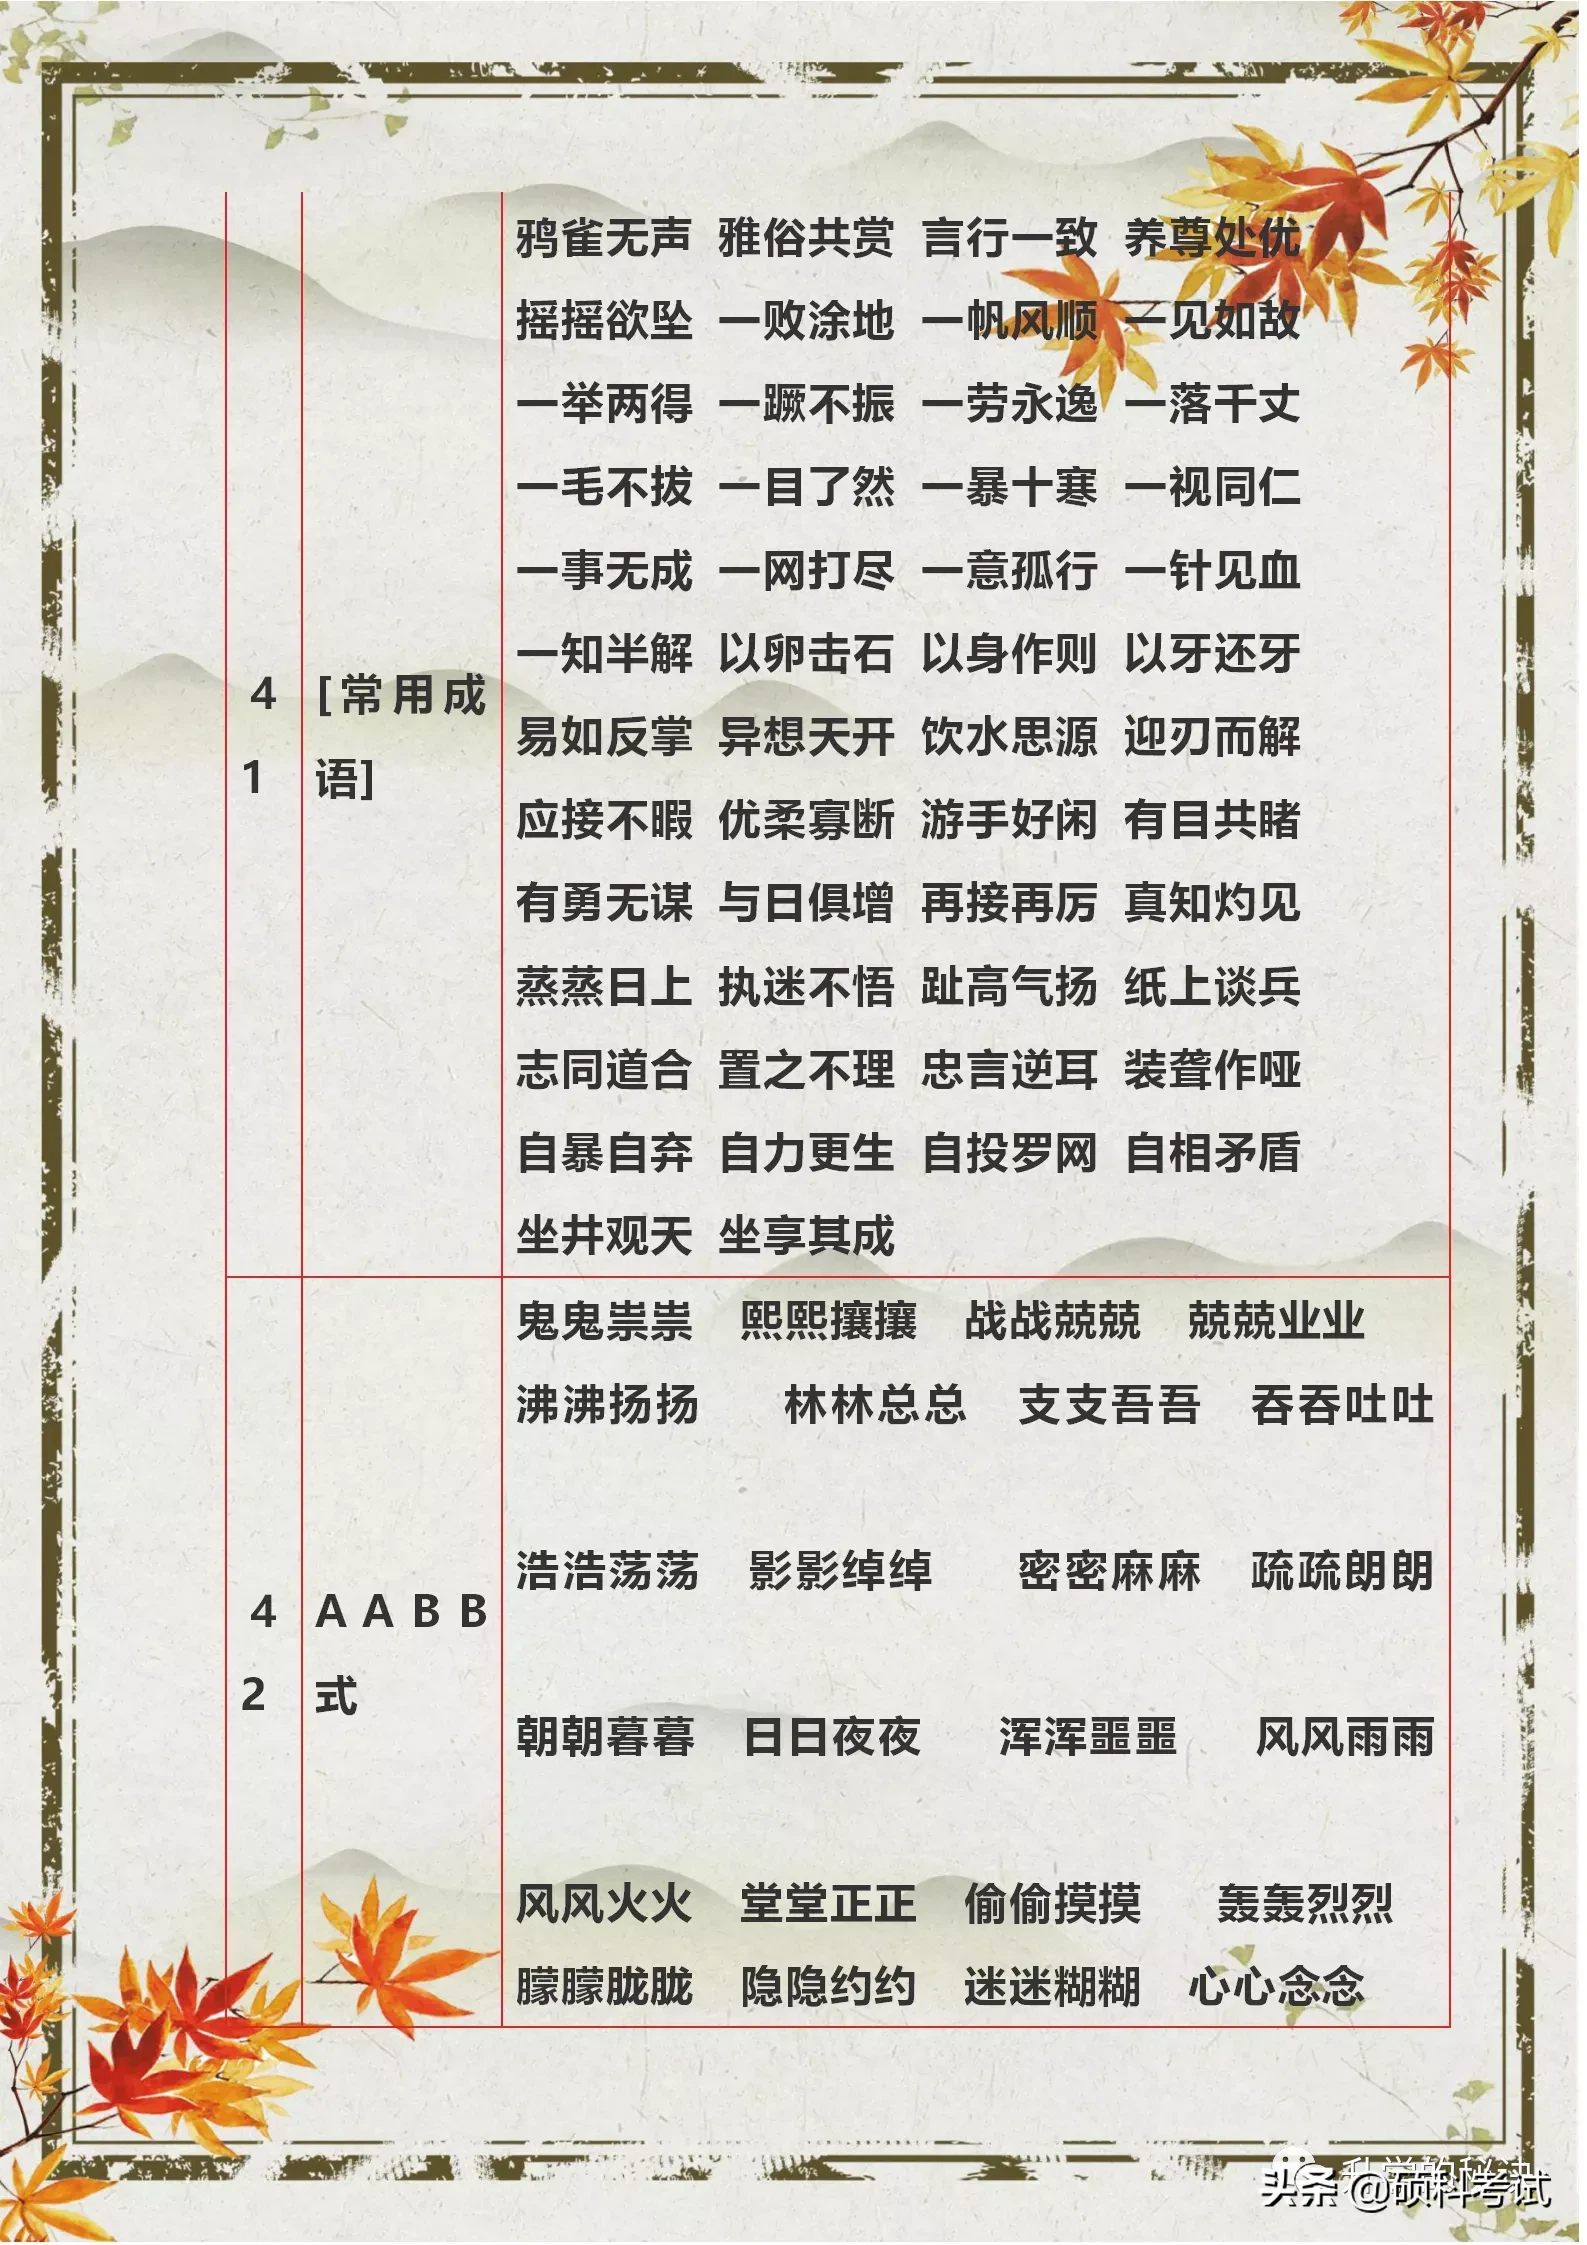 鸦雀无声 雅俗共赏 言行一致 养尊处优
摇摇欲坠 一败涂地 一帆风顺 一见如故
一举两得 一蹶不振 一劳永逸 一落千丈
一毛不拔 一目了然 一暴十寒 一视同仁
一事无成 一网打尽 一意孤行 一针见血
一知半解 以卵击石 以身作则 以牙还牙
41
[常用成
语]
易如反掌 异想天开 饮水思源 迎刃而解
应接不暇 优柔寡断 游手好闲 有目共睹
有勇无谋 与日俱增 再接再厉 真知灼见
蒸蒸日上 执迷不悟 趾高气扬 纸上谈兵
志同道合 置之不理 忠言逆耳 装聋作哑
自暴自弃 自力更生 自投罗网 自相矛盾
坐井观天 坐享其成
鬼鬼祟祟 熙熙攘攘 战战兢兢 兢兢业业
沸沸扬扬 林林总总 支支吾吾 吞吞吐吐
浩浩荡荡 影影绰绰 密密麻麻 疏疏朗朗
42
AABB
式
朝朝暮暮 日日夜夜 浑浑噩噩 风风雨雨
风风火火 堂堂正正 偷偷摸摸 轰轰烈烈
朦朦胧胧 隐隐约约 迷迷糊糊 心心念念
头条 @硕科考试